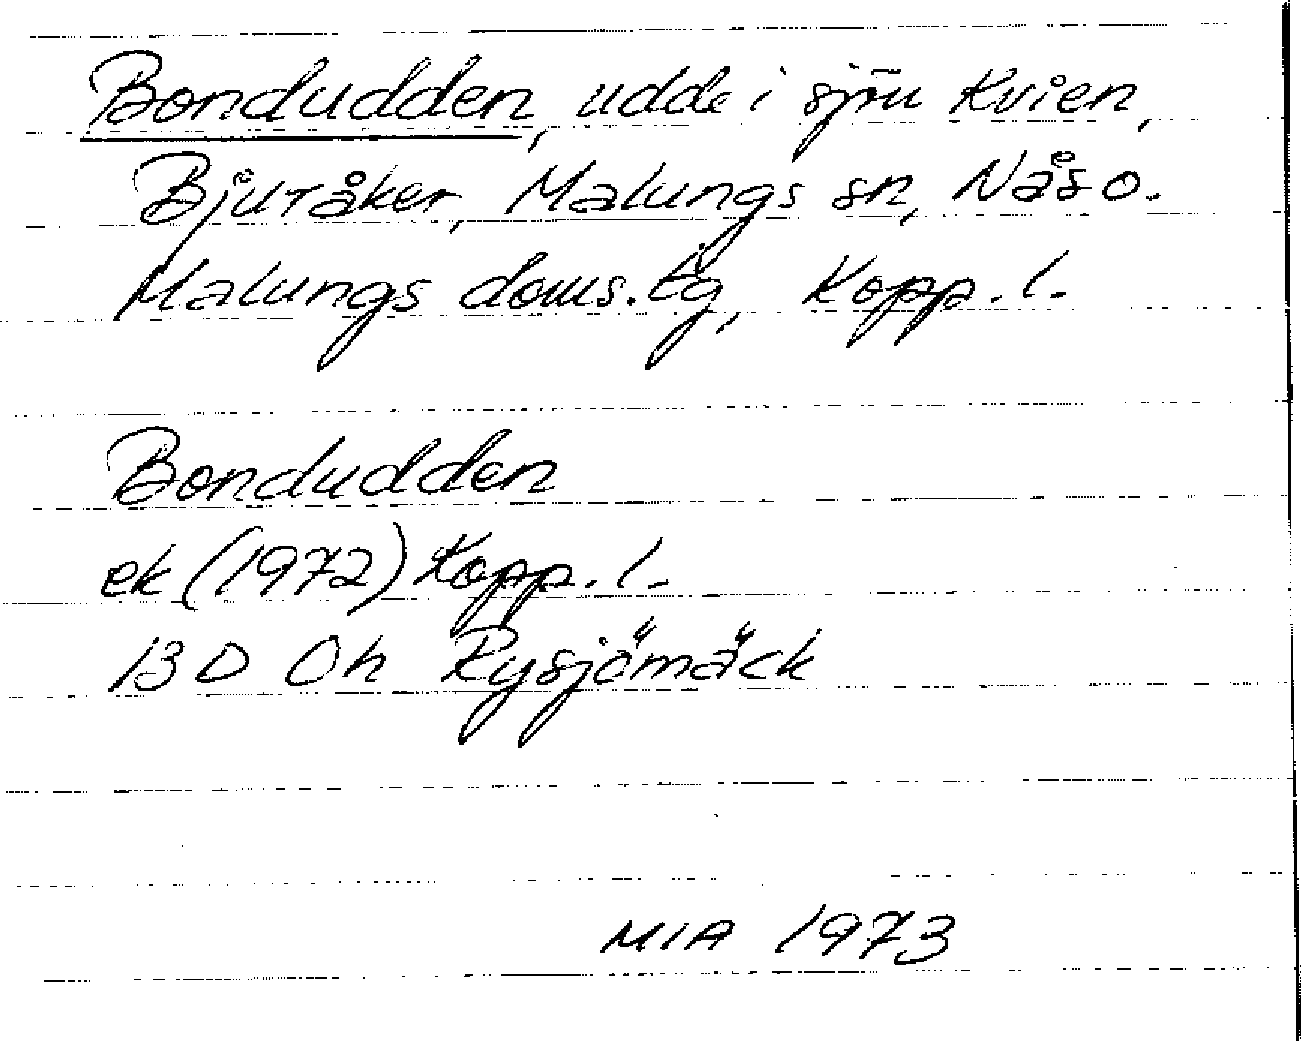 Bondudden, udde i sjön Kvien,
Bjuråker, Malungs sn, Nås o.
Malungs doms.lg, Kopp. l.
Bondudden
ek (1972) Kopp. l.
13 D 0h Rysjömäck
MIA 1973